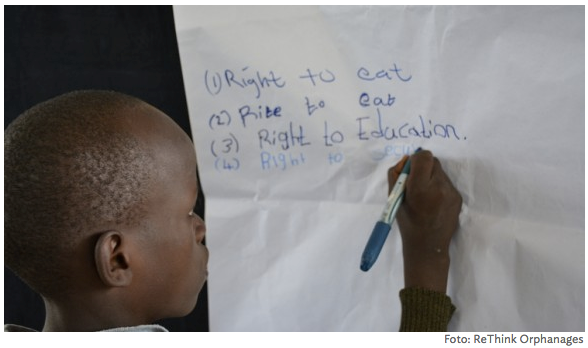 (1) Right to eat
(2) Rite to eat
(3) Right to Education.
(4) Right to
Foto: ReThink Orphanages